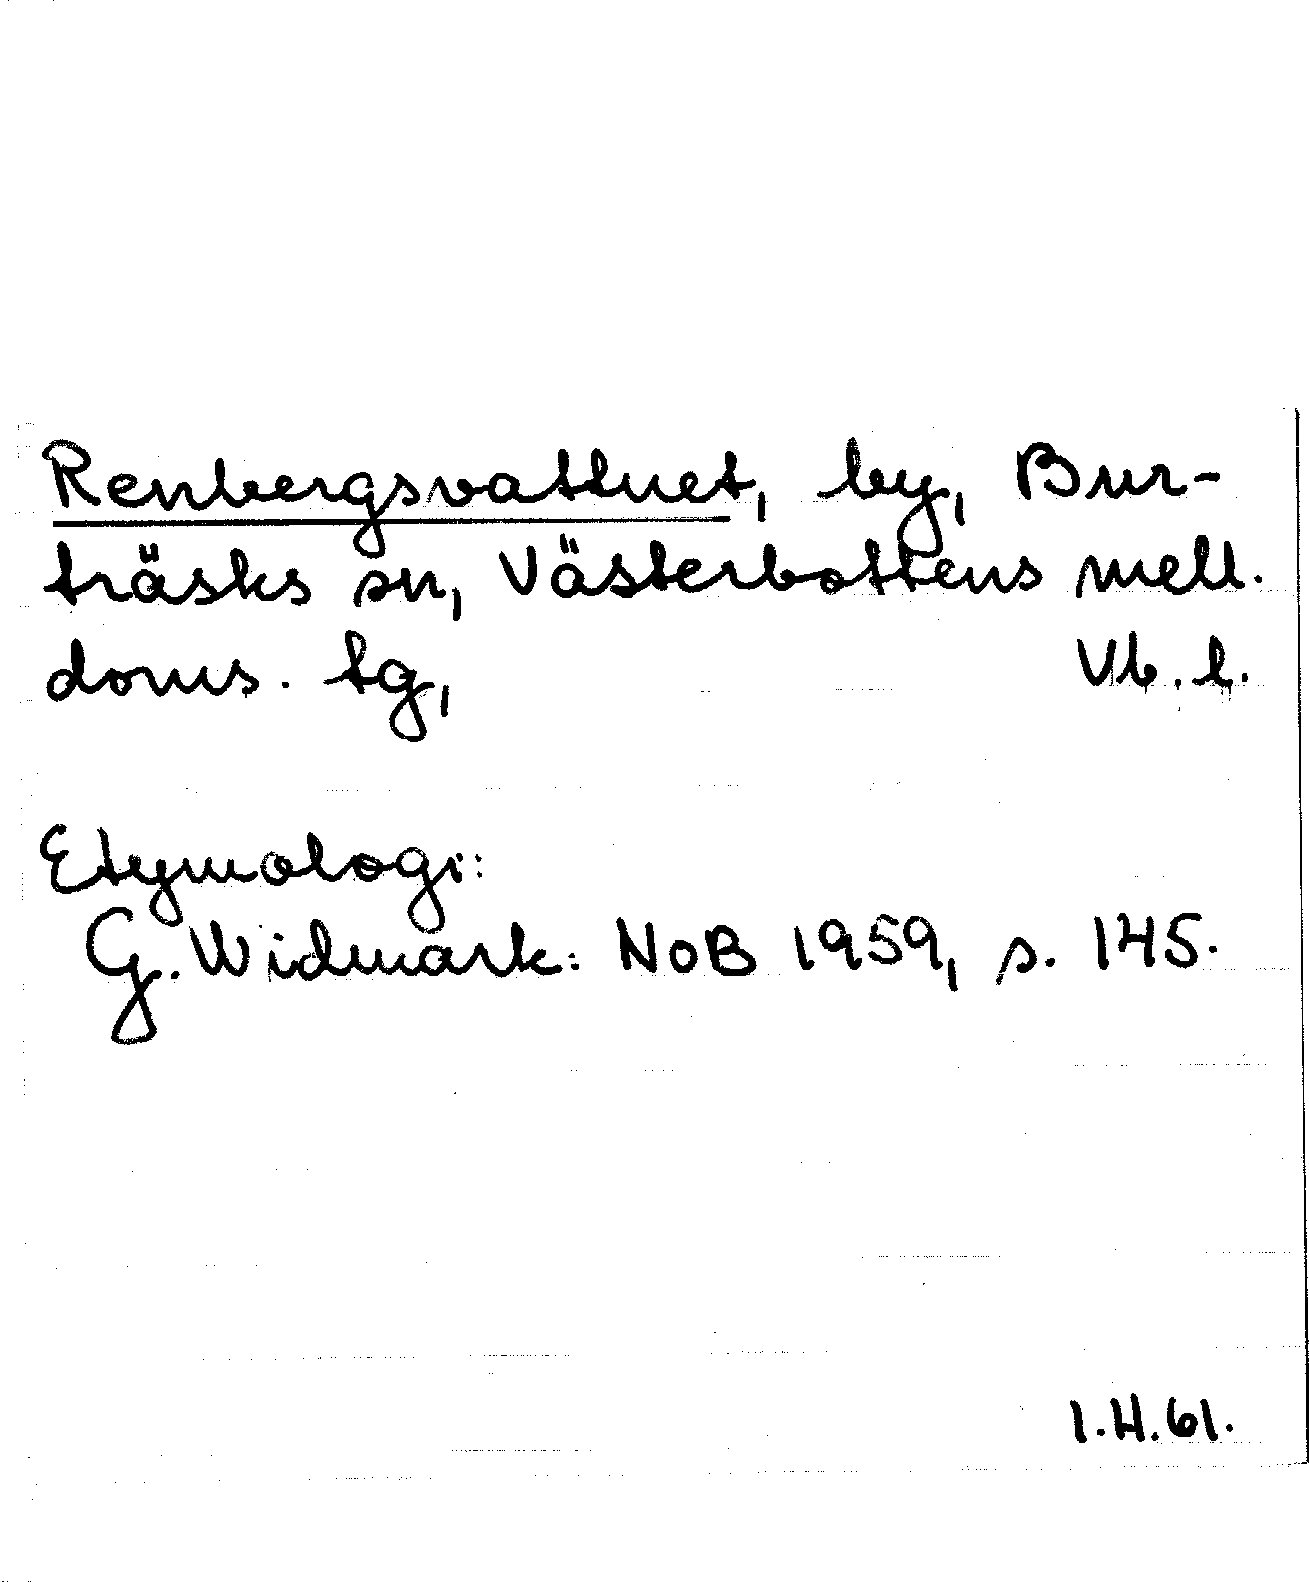 Renbergsvattnet, by, Bur-
träsks sn, Västerbottens mell.
doms. tg, Vb. l.
Etymologi:
G. Widmark: NoB 1959, s. 145.
I.H.61.